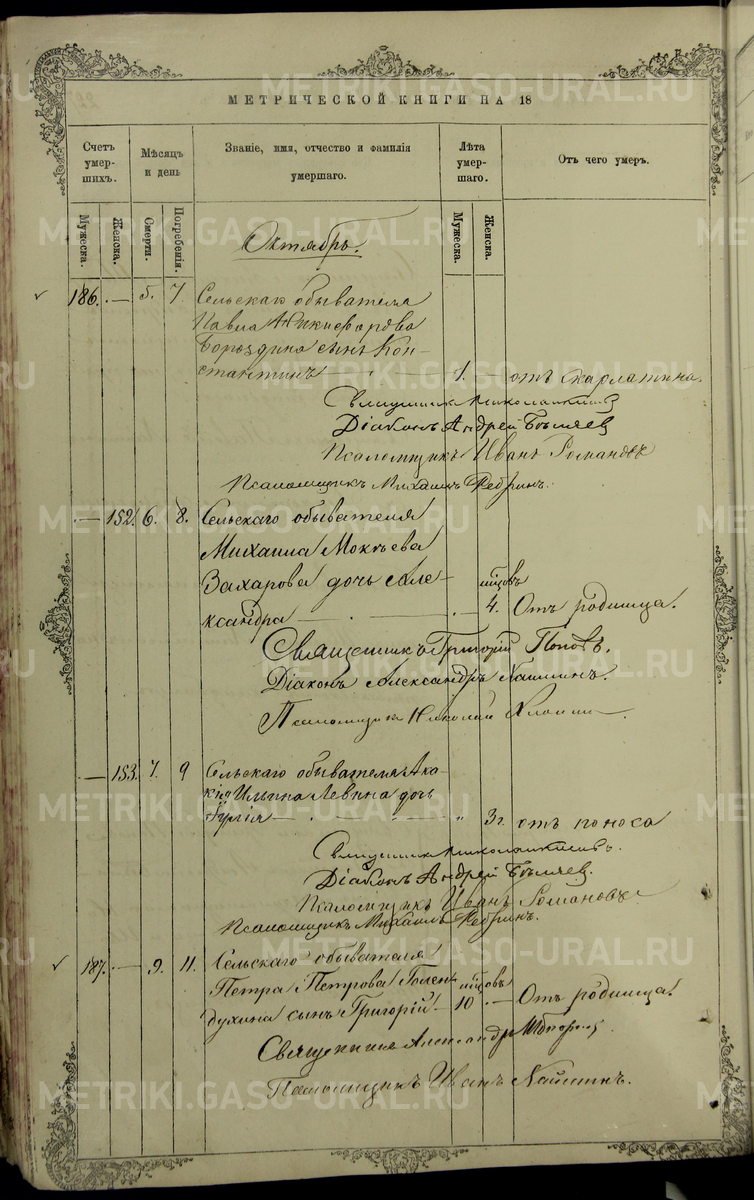 МЕТРИЧЕСКОЙ КНИГИ НА 18
Счетъ умер-шихъ.
Мѣсяцъ и день
Званіе, имя, отчество и фамилія умершаго.
Лѣта умер-шаго.
Отъ чего умеръ.
Мужеска.
Женска.
Смерти.
Погребенія.
Мужеска.
Женска.
Октябрь.
186. — 5. 7. Сельскаго обывателя
Павла Никифорова
Бороздина сынъ Кон-
стантинъ — 1. — отъ скарлатина.
Священникъ
Діаконъ Андрей
Псаломщикъ Иванъ Романовъ
Псаломщикъ Михаилъ Ребринъ.
— 152. 6. 8. Сельскаго обывателя
Михаила Мокѣева
Захарова дочь Але- мѣсяцовъ
ксандра — . — 4. Отъ родимца.
Священникъ Григорій Поповъ.
Діаконъ Александръ
Псаломщикъ Николай
— 153. 7. 9 Сельскаго обывателя Ака-
кія Ильина Левина дочь
— „ 3г. отъ поноса
Священникъ
Діаконъ Андрей
Псаломщикъ Иванъ Романовъ
Псаломщикъ Михаилъ Ребринъ.
187. — 9. 11. Сельскаго обывателя
Петра Петрова Голен- мѣсяцовъ
духина сынъ Григорій — 10 — Отъ родимца.
Священникъ Александръ
Псаломщикъ Иванъ
METRIKI.GASO-URAL.RU